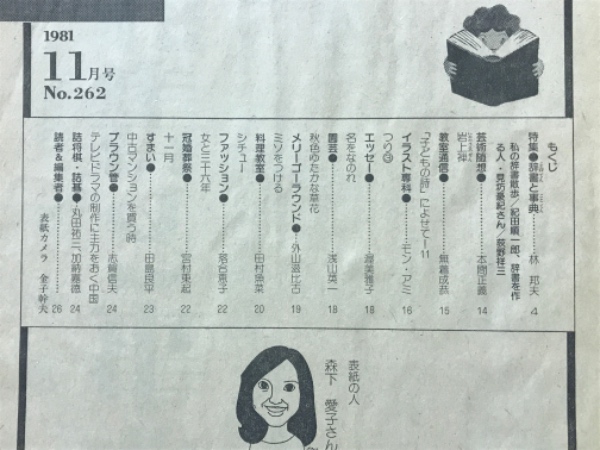 1981
11月号
No.262
もくじ
特集●辞書と事典……林 邦夫 4
私の辞書散歩／紀田順一郎、辞書を作
る人・見坊豪紀さん／荻野祥三
芸術随想●……本間正義 14
岩上神
教室通信●……無着成恭 15
「子どもの詩」によせて―11
イラスト専科●……モン・アミ 16
つり③
エッセー●……渥美雅子 18
名をなのれ
園芸●……浅山英一 18
秋色ゆたかな草花
メリーゴーラウンド●……外山滋比古 19
ミソをつける
料理教室●……田村魚菜 20
シチュー
ファッション●……落合恵子 22
女と三十六年
冠婚葬祭●……宮村東起 22
十一月
すまい●……田島良平 23
中古マンションを買う時
ブラウン管●……志賀信夫 24
テレビドラマの制作に主力をおく中国
詰将棋・詰碁●……丸田祐三、加納嘉徳 24
読者＆編集者●……26
表紙カメラ 金子幹夫
表紙の人
森下 愛子さん